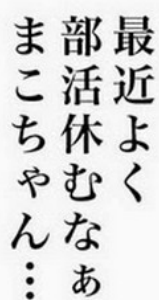 最近よく
部活休むなぁ
まこちゃん…